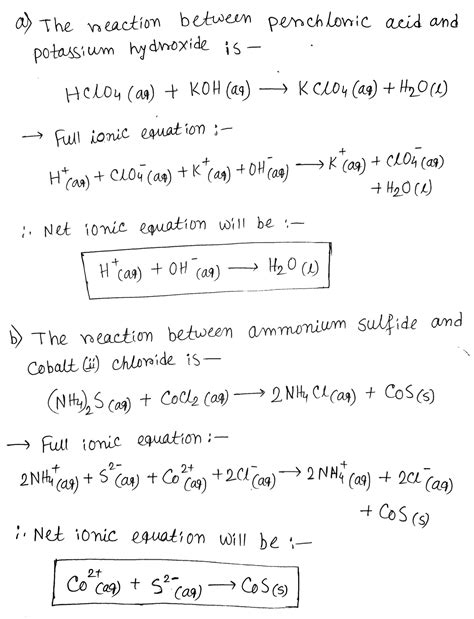 a) The reaction between perchloric acid and
potassium hydroxide is —
HClO4 (aq) + KOH (aq) ⟶ KClO4 (aq) + H2O (l)
→ Full ionic equation :—
H⁺(aq) + ClO4⁻(aq) + K⁺(aq) + OH⁻(aq) ⟶ K⁺(aq) + ClO4⁻(aq)
+ H2O (l)
∴ Net ionic equation will be :—
H⁺(aq) + OH⁻(aq) ⟶ H2O (l)
b) The reaction between ammonium sulfide and
Cobalt (ii) chloride is —
(NH4)2S (aq) + CoCl2 (aq) ⟶ 2NH4Cl (aq) + CoS (s)
→ Full ionic equation :—
2NH4⁺(aq) + S²⁻(aq) + Co²⁺(aq) + 2Cl⁻(aq) ⟶ 2NH4⁺(aq) + 2Cl⁻(aq)
+ CoS (s)
∴ Net ionic equation will be :—
Co²⁺(aq) + S²⁻(aq) ⟶ CoS (s)